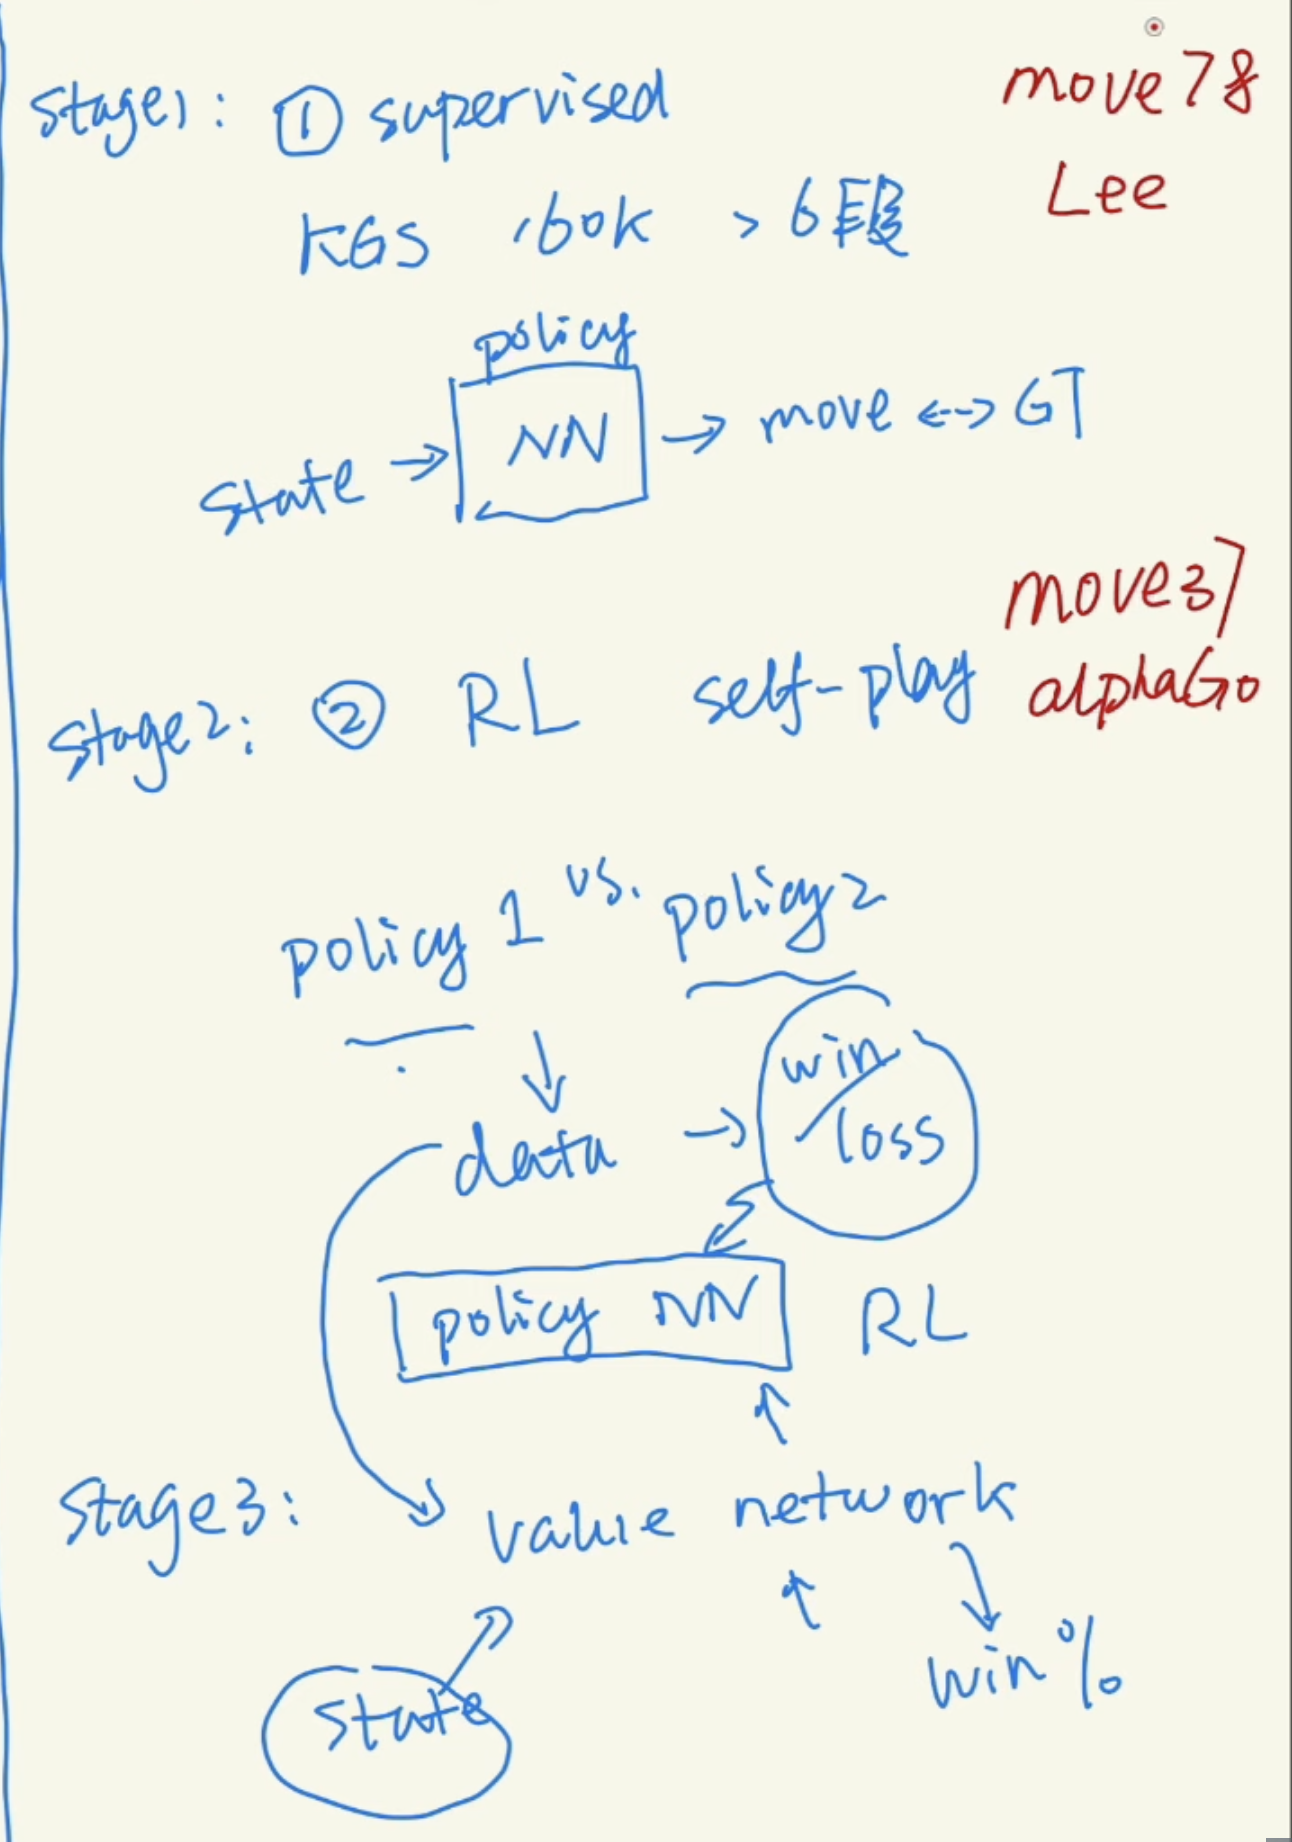 stage1: ① supervised
move 78
Lee
KGS 160k > 6段
policy
NN
state → → move <--> GT
move37
alphaGo
stage2: ② RL self-play
policy 1 vs. policy2
data → win/loss
policy NN RL
stage3: value network
win%
state